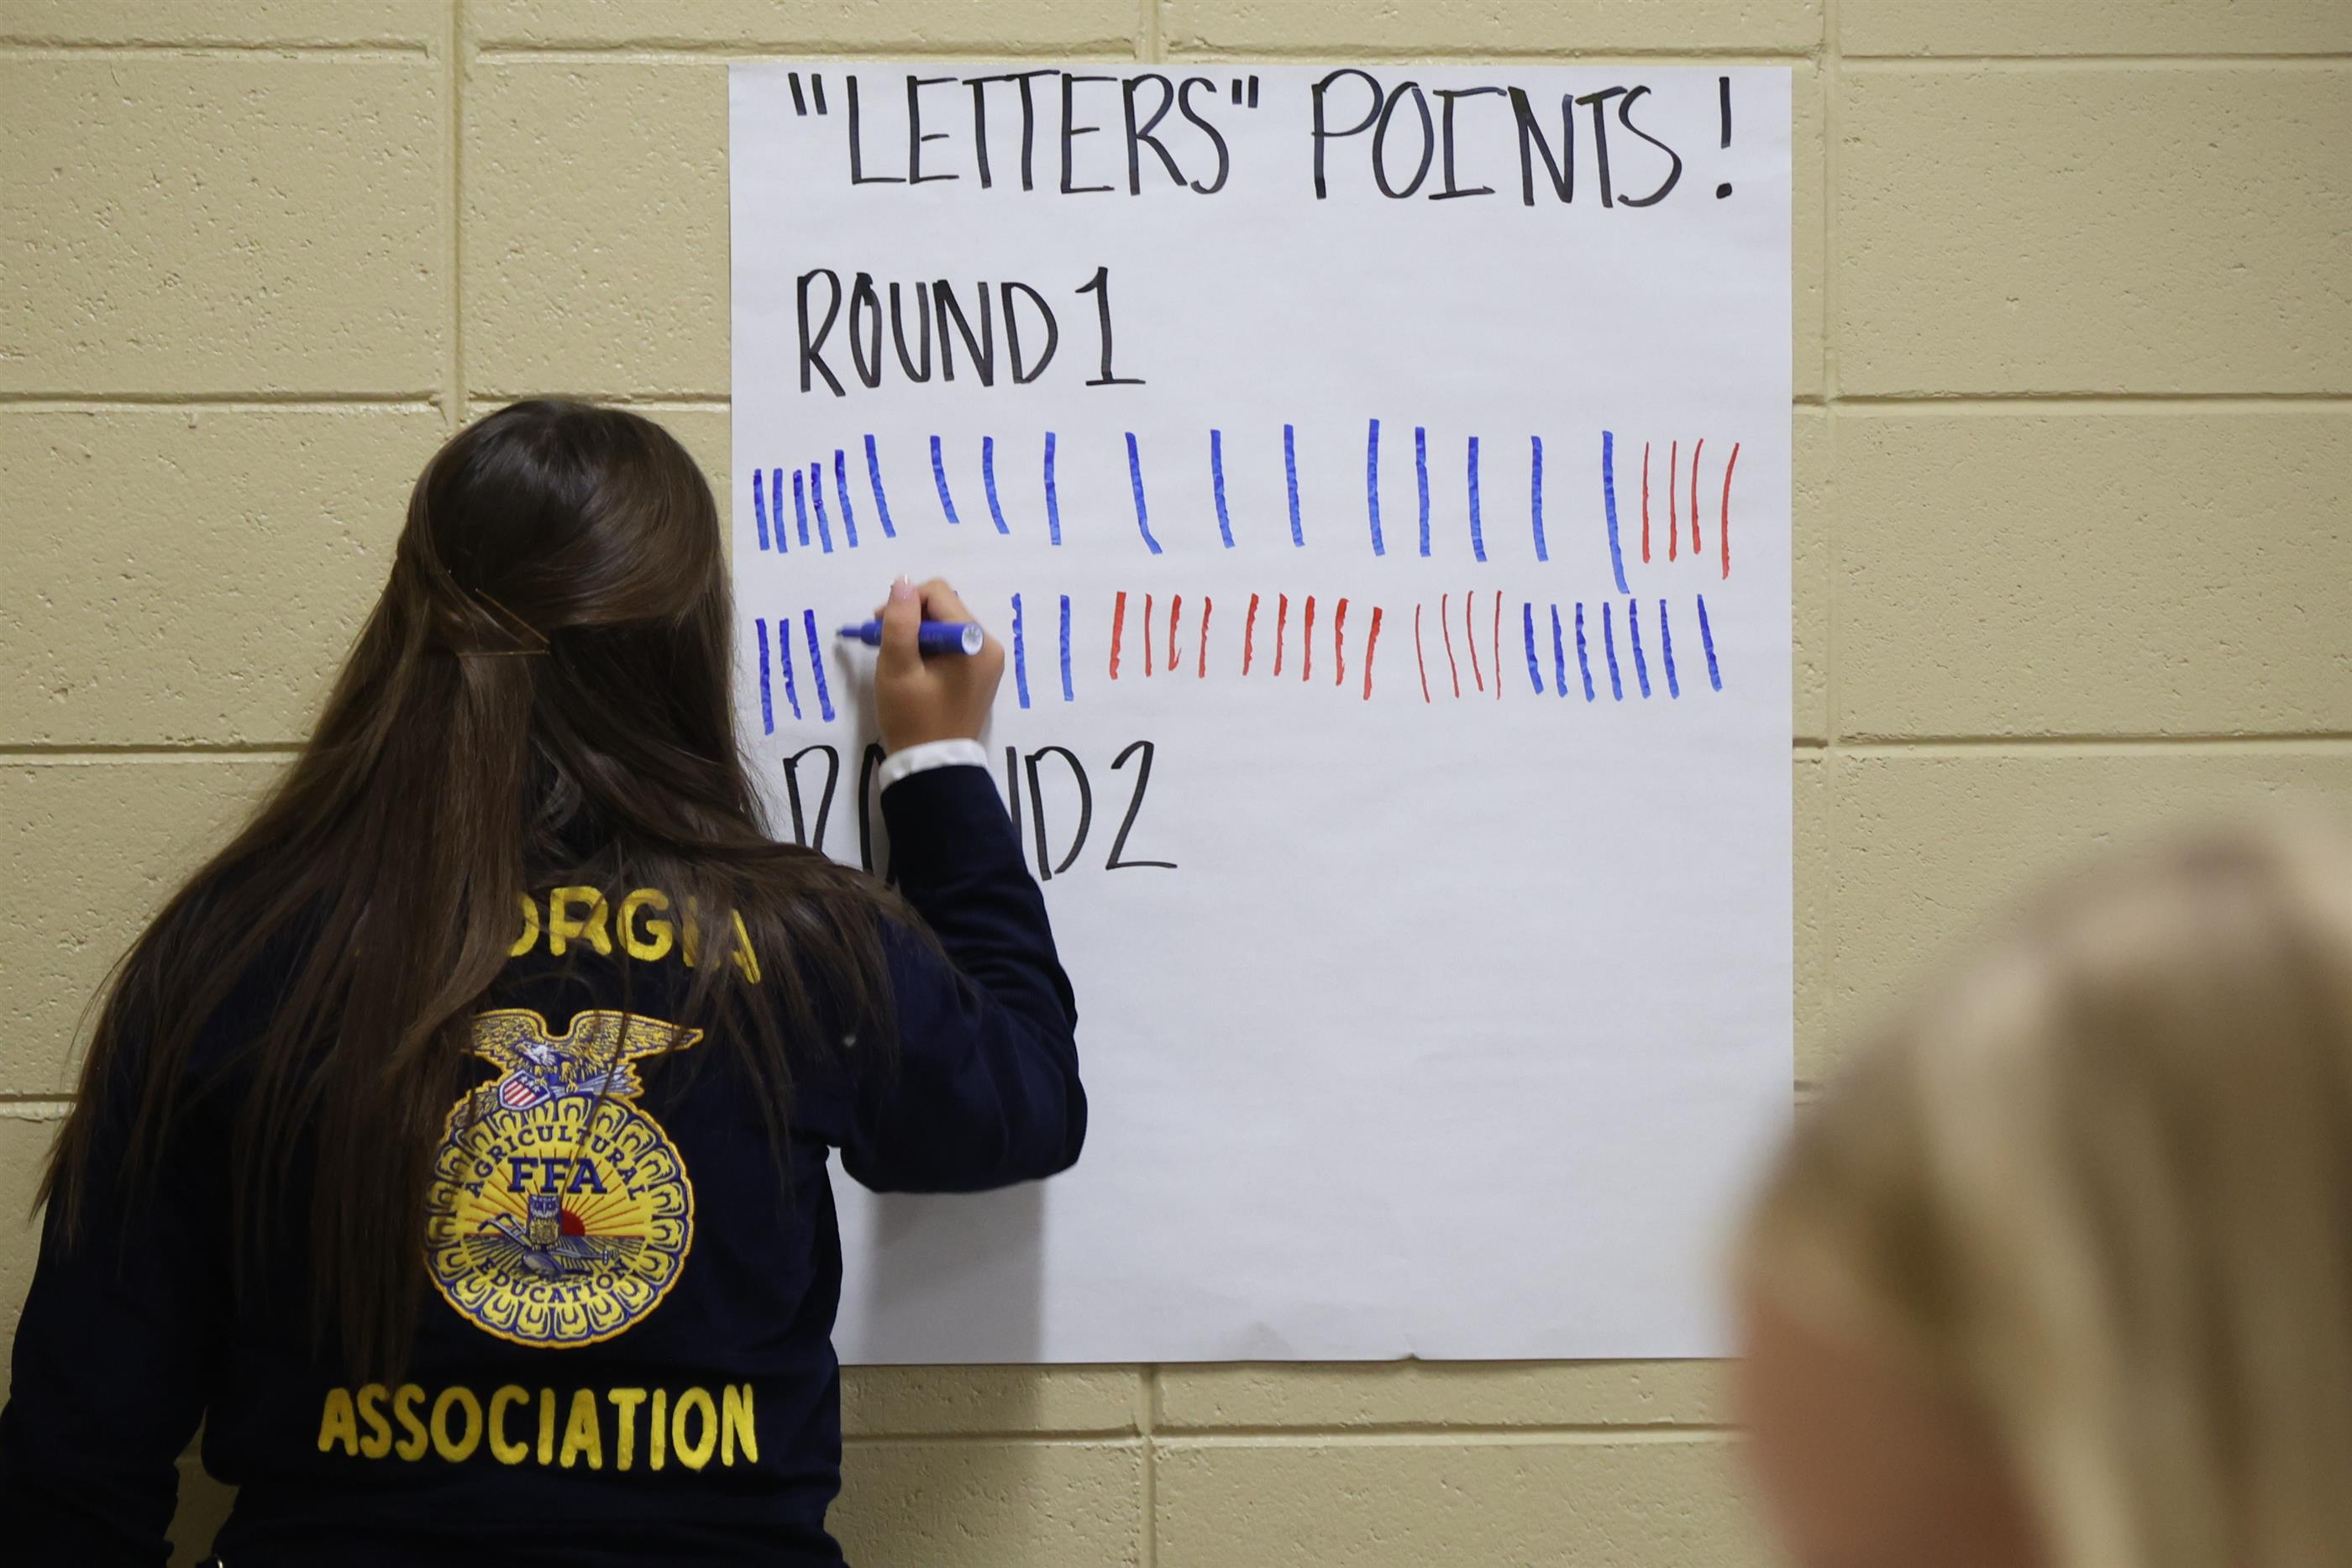 "LETTERS" POINTS!
ROUND 1
ROUND 2
GEORGIA
AGRICULTURAL
FFA
EDUCATION
ASSOCIATION